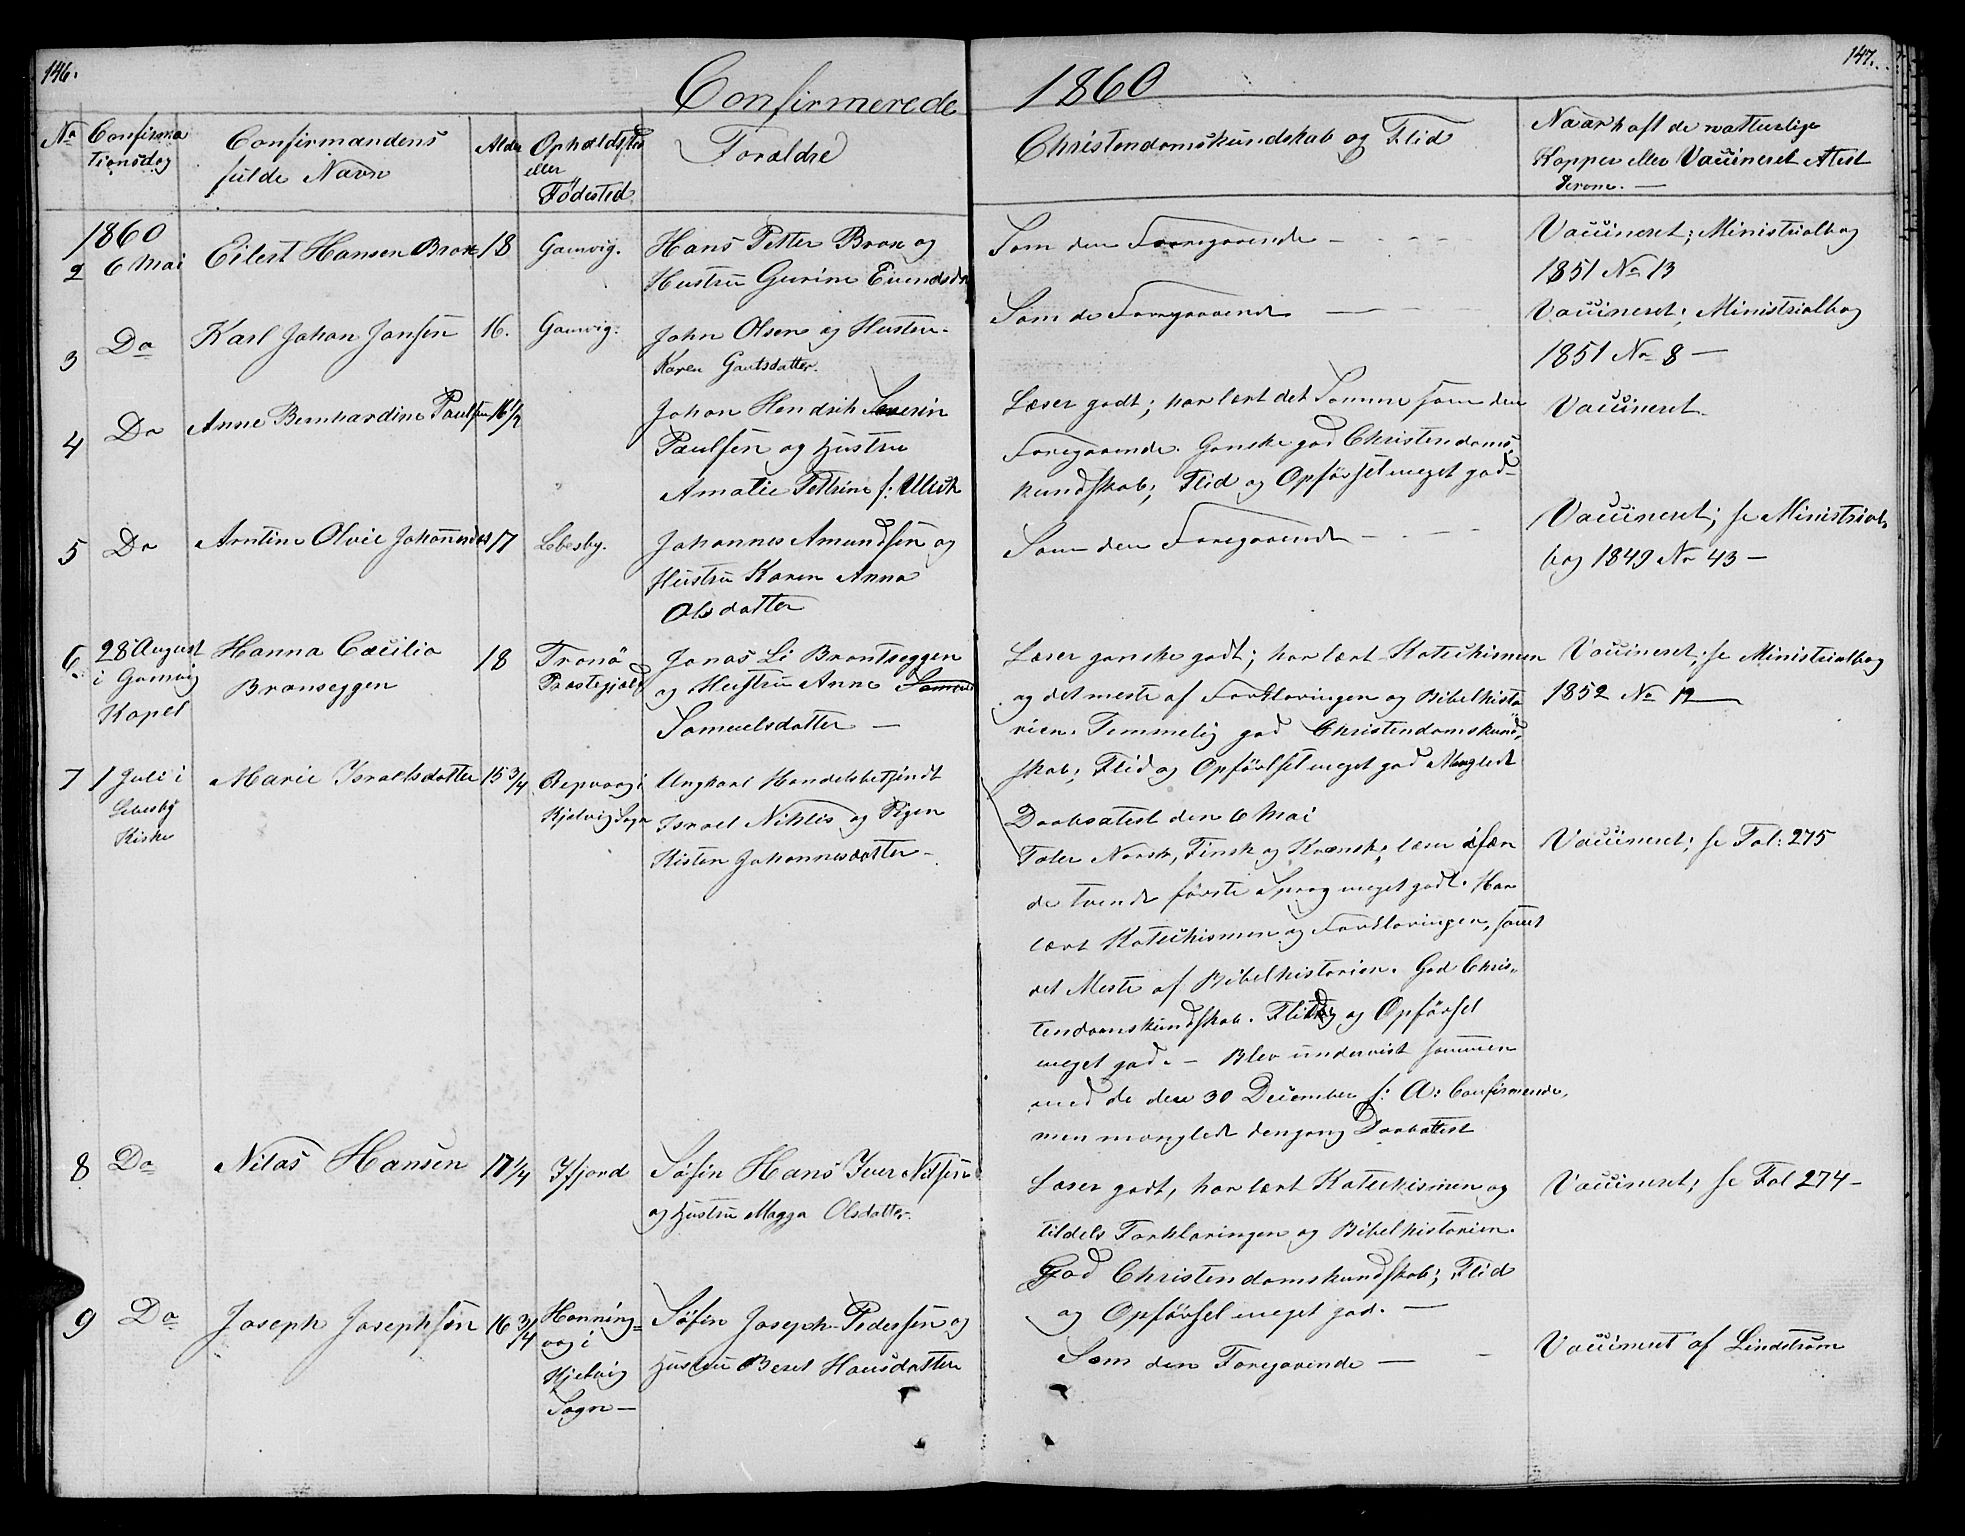 146.
147.
Confirmerede
1860
No
Confirma
tionsdag
Confirmandens
fulde Navn
Alder
Opholdsted
eller
Födested
Forældre
Christendomskundskab og Flid
Naar haft de naturlige
Kopper eller Vaccineret Atest
derom. —
1860
2 6 Mai
Eilert Hansen Brox
18
Gamvig.
Hans Petter Brox og
Hustru Gurine Evendsdr
Som den Foregaaende —
Vaccineret; Ministrialbog
1851 No 13
3 Do
Karl Johan Jansen
16.
Gamvig.
John Olsen og Hustru
Karen Gautsdatter.
Som de Foregaaende —
Vaccineret; Ministrialbog
1851 No 8 —
4 Do
Anne Bernhardine Paulsen
16 1/2
Johan Hendrik Severin
Paulsen og Hustru
Amalie Pettrine f: Ulich
Læser godt; har lært det Samme som den
Foregaaende. Ganske god Christendoms,
kundskab; Flid og Opförsel meget god
Vaccineret.
5 Do
Arntine Olvie Johannesdr
17
Lebesby.
Johannes Amundsen og
Hustru Karen Anna
Olsdatter
Som den Foregaaende —
Vaccineret; se Ministrial,
bog 1849 No 43 —
6. 28 August
i Gamvig
Kapel
Hanna Cæcilia
Bronseggen
18
Tranö
Præstegjæld
Jonas Li Brontseggen
og Hustru Anne
Samuelsdatter —
Læser ganske godt; har lært Katechismen
og det meste af Forklaringen og Bibelhisto
rien. Temmelig god Christendomskund,
skab; Flid og Opförsel meget god Manglede
Daabsatest den 6 Mai
Vaccineret; se Ministrialbog
1852 No 12
7 1 Juli i
Lebesby
Kirke
Marie Israelsdatter
15 3/4
Repvaag i
Kjelvig Sogn
Ungkarl Handelsbetjendt
Israel Niklis og Pigen
Kisten Johannesdatter —
Taler Norsk, Finsk og Kvænsk; læser især
de tvende förste Sprog meget godt. Har
lært Katechismen og Forklaringen, samt
det Meste af Bibelhistorien. God Chris,
tendomskundskab. Flid og Opförsel
meget god. — Blev undervist sammen
med de den 30 December f: A: Confirmerede,
men manglede dengang Daabattest
Vaccineret; se Fol: 275
8 Do
Nilas Hansen
17 1/4
Ifjord
Söfin Hans Iver Nilsen
og Hustru Magga Olsdatter.
Læser godt, har lært Katechismen og
tildels Forklaringen og Bibelhistorien.
God Christendomskundskab; Flid
og Opförsel meget god. —
Vaccineret; se Fol 274 —
9 Do
Joseph Josephsen
16 3/4
Honning=
vog i
Kjelvig
Sogn —
Söfin Joseph Pedersen og
Hustru Beret Hansdatter
Som den Foregaaende —
Vaccineret af Lindstrøm